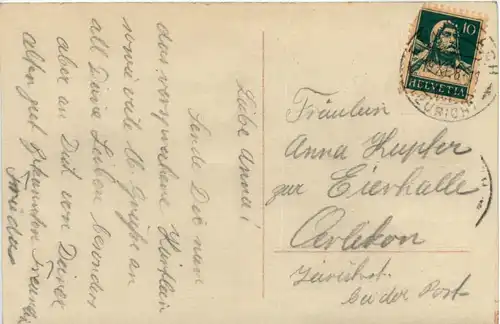 Liebe Anna!
Sende Dir nun
das versprochene
sowie viele lb. Grüße an
all Deine Lieben besonders
aber an Dich von Deiner
alten gut bekannten Freundin
Frieda
10
HELVETIA
ZÜRICH
Fräulein
Anna Hupfer
zur Eierhalle
Oerlikon
Zürichst.
bei der Post